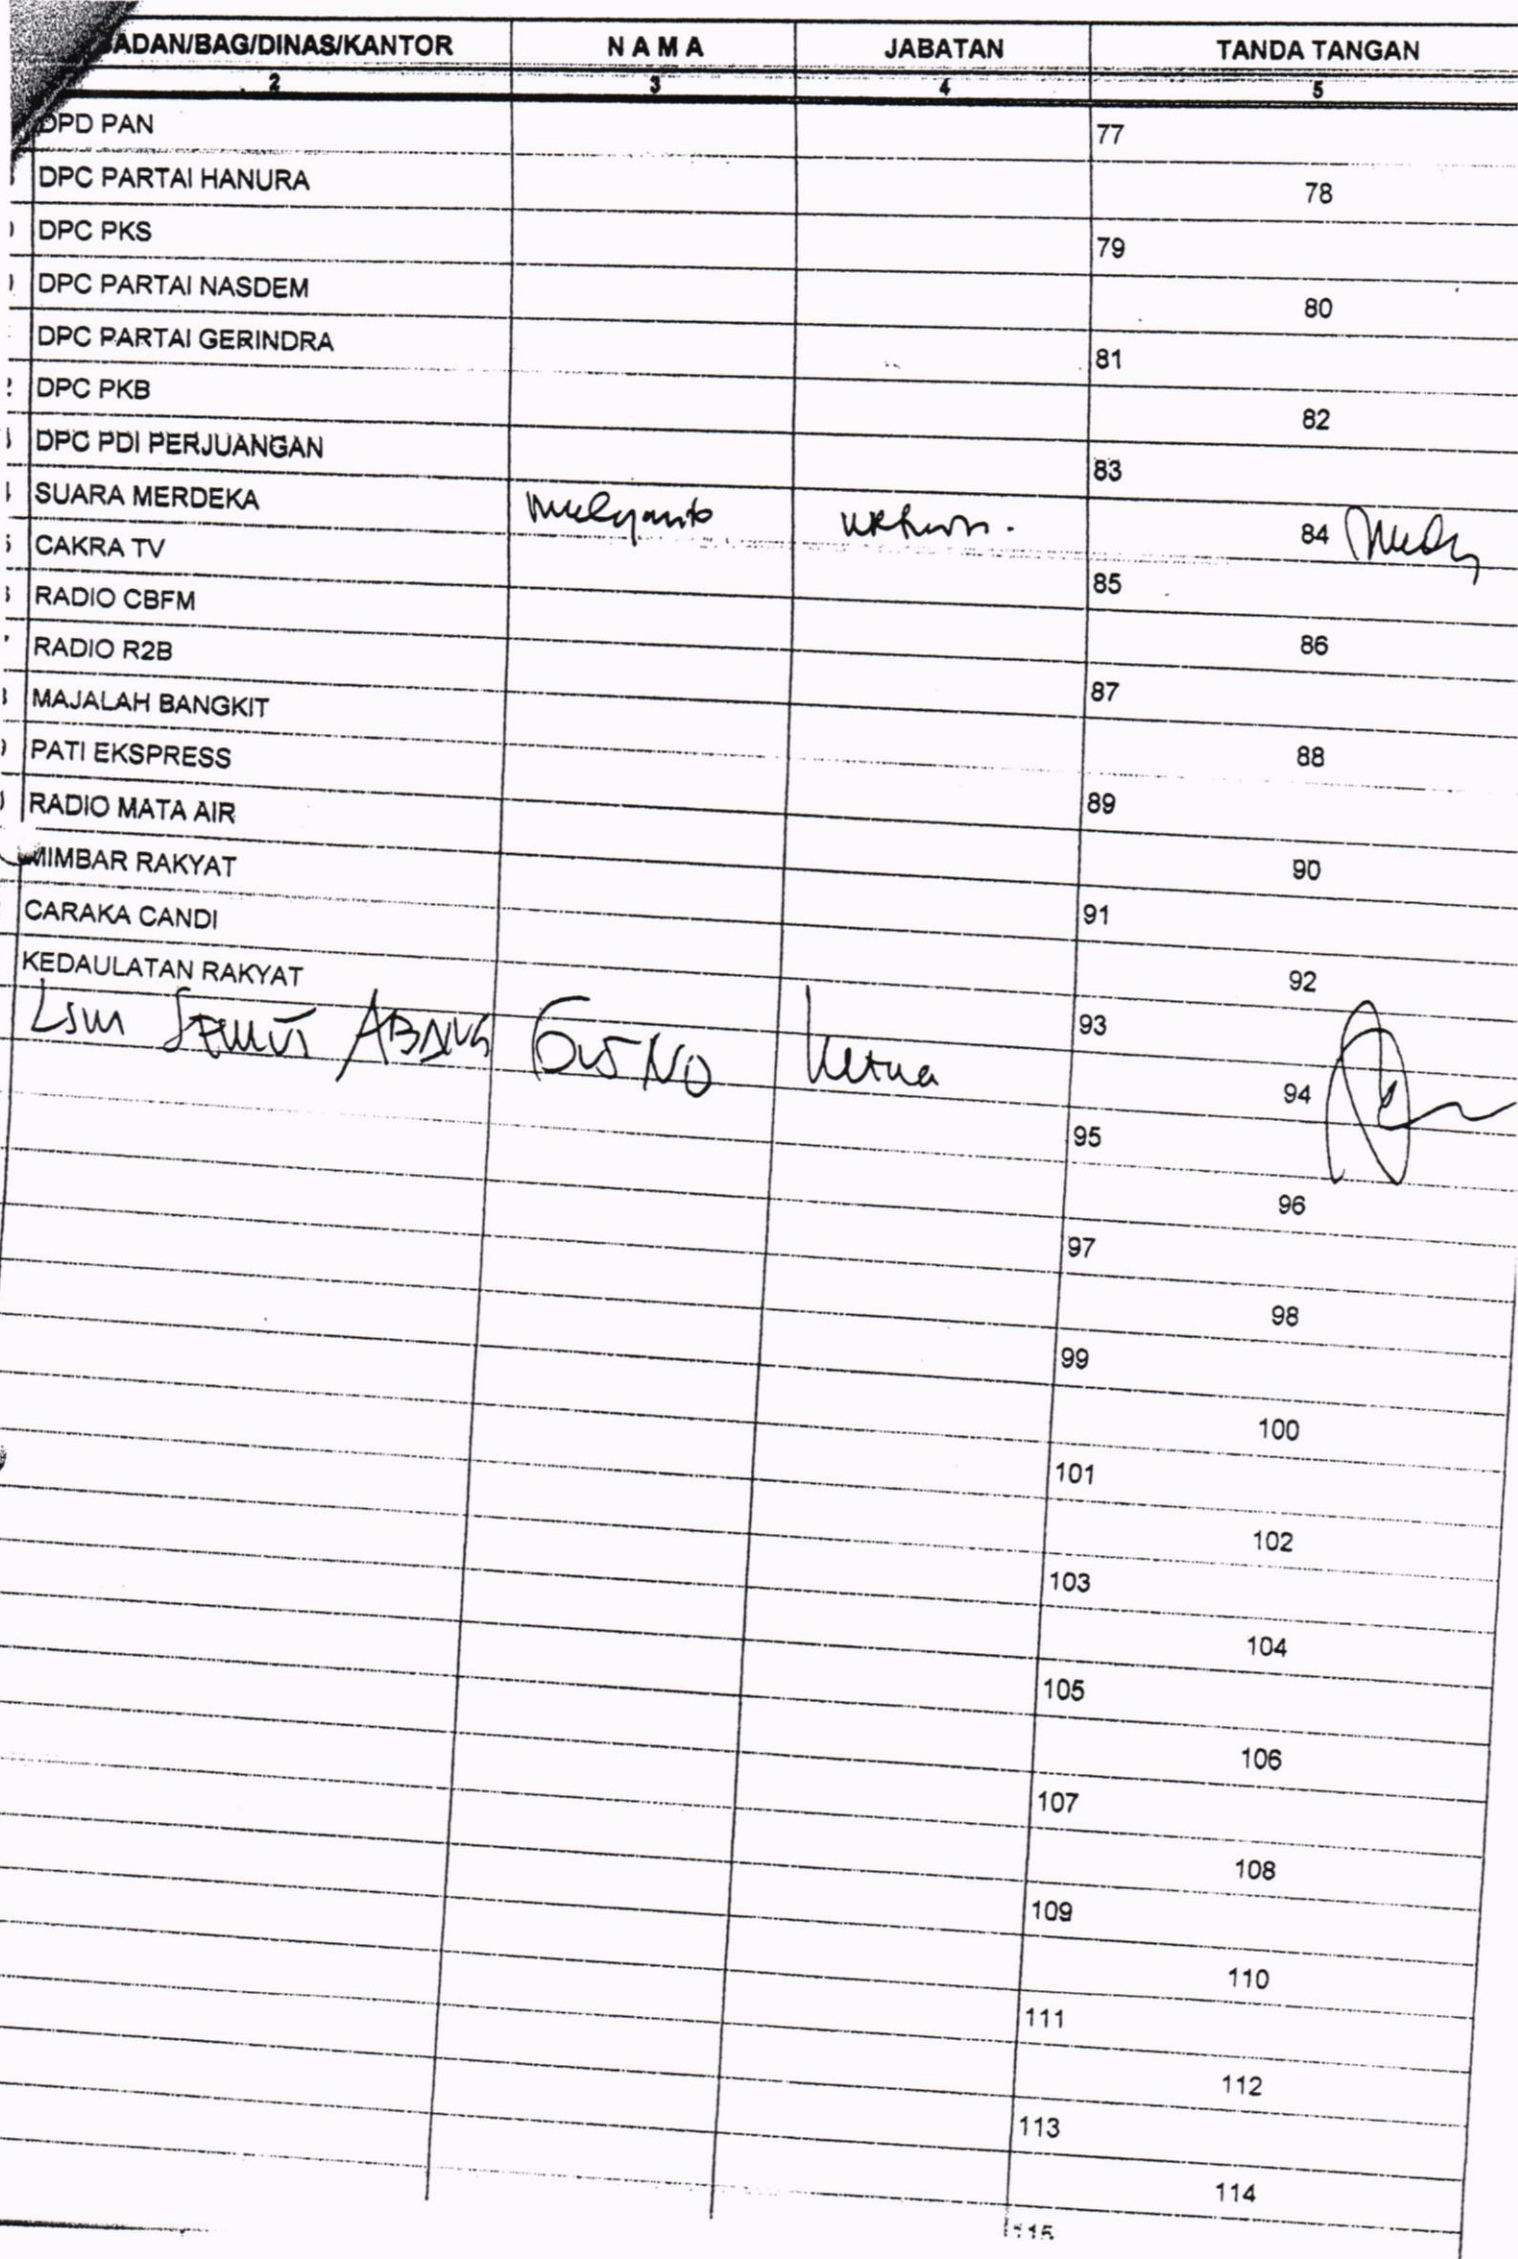 BADAN/BAG/DINAS/KANTOR N A M A JABATAN TANDA TANGAN
2 3 4 5
DPD PAN 77
DPC PARTAI HANURA 78
DPC PKS 79
DPC PARTAI NASDEM 80
DPC PARTAI GERINDRA 81
DPC PKB 82
DPC PDI PERJUANGAN 83
SUARA MERDEKA Mulyanto 84
CAKRA TV 85
RADIO CBFM 86
RADIO R2B 87
MAJALAH BANGKIT 88
PATI EKSPRESS 89
RADIO MATA AIR 90
MIMBAR RAKYAT 91
CARAKA CANDI 92
KEDAULATAN RAKYAT 93
LSM SEMUT ABANG Ketua 94
95
96
97
98
99
100
101
102
103
104
105
106
107
108
109
110
111
112
113
114
115